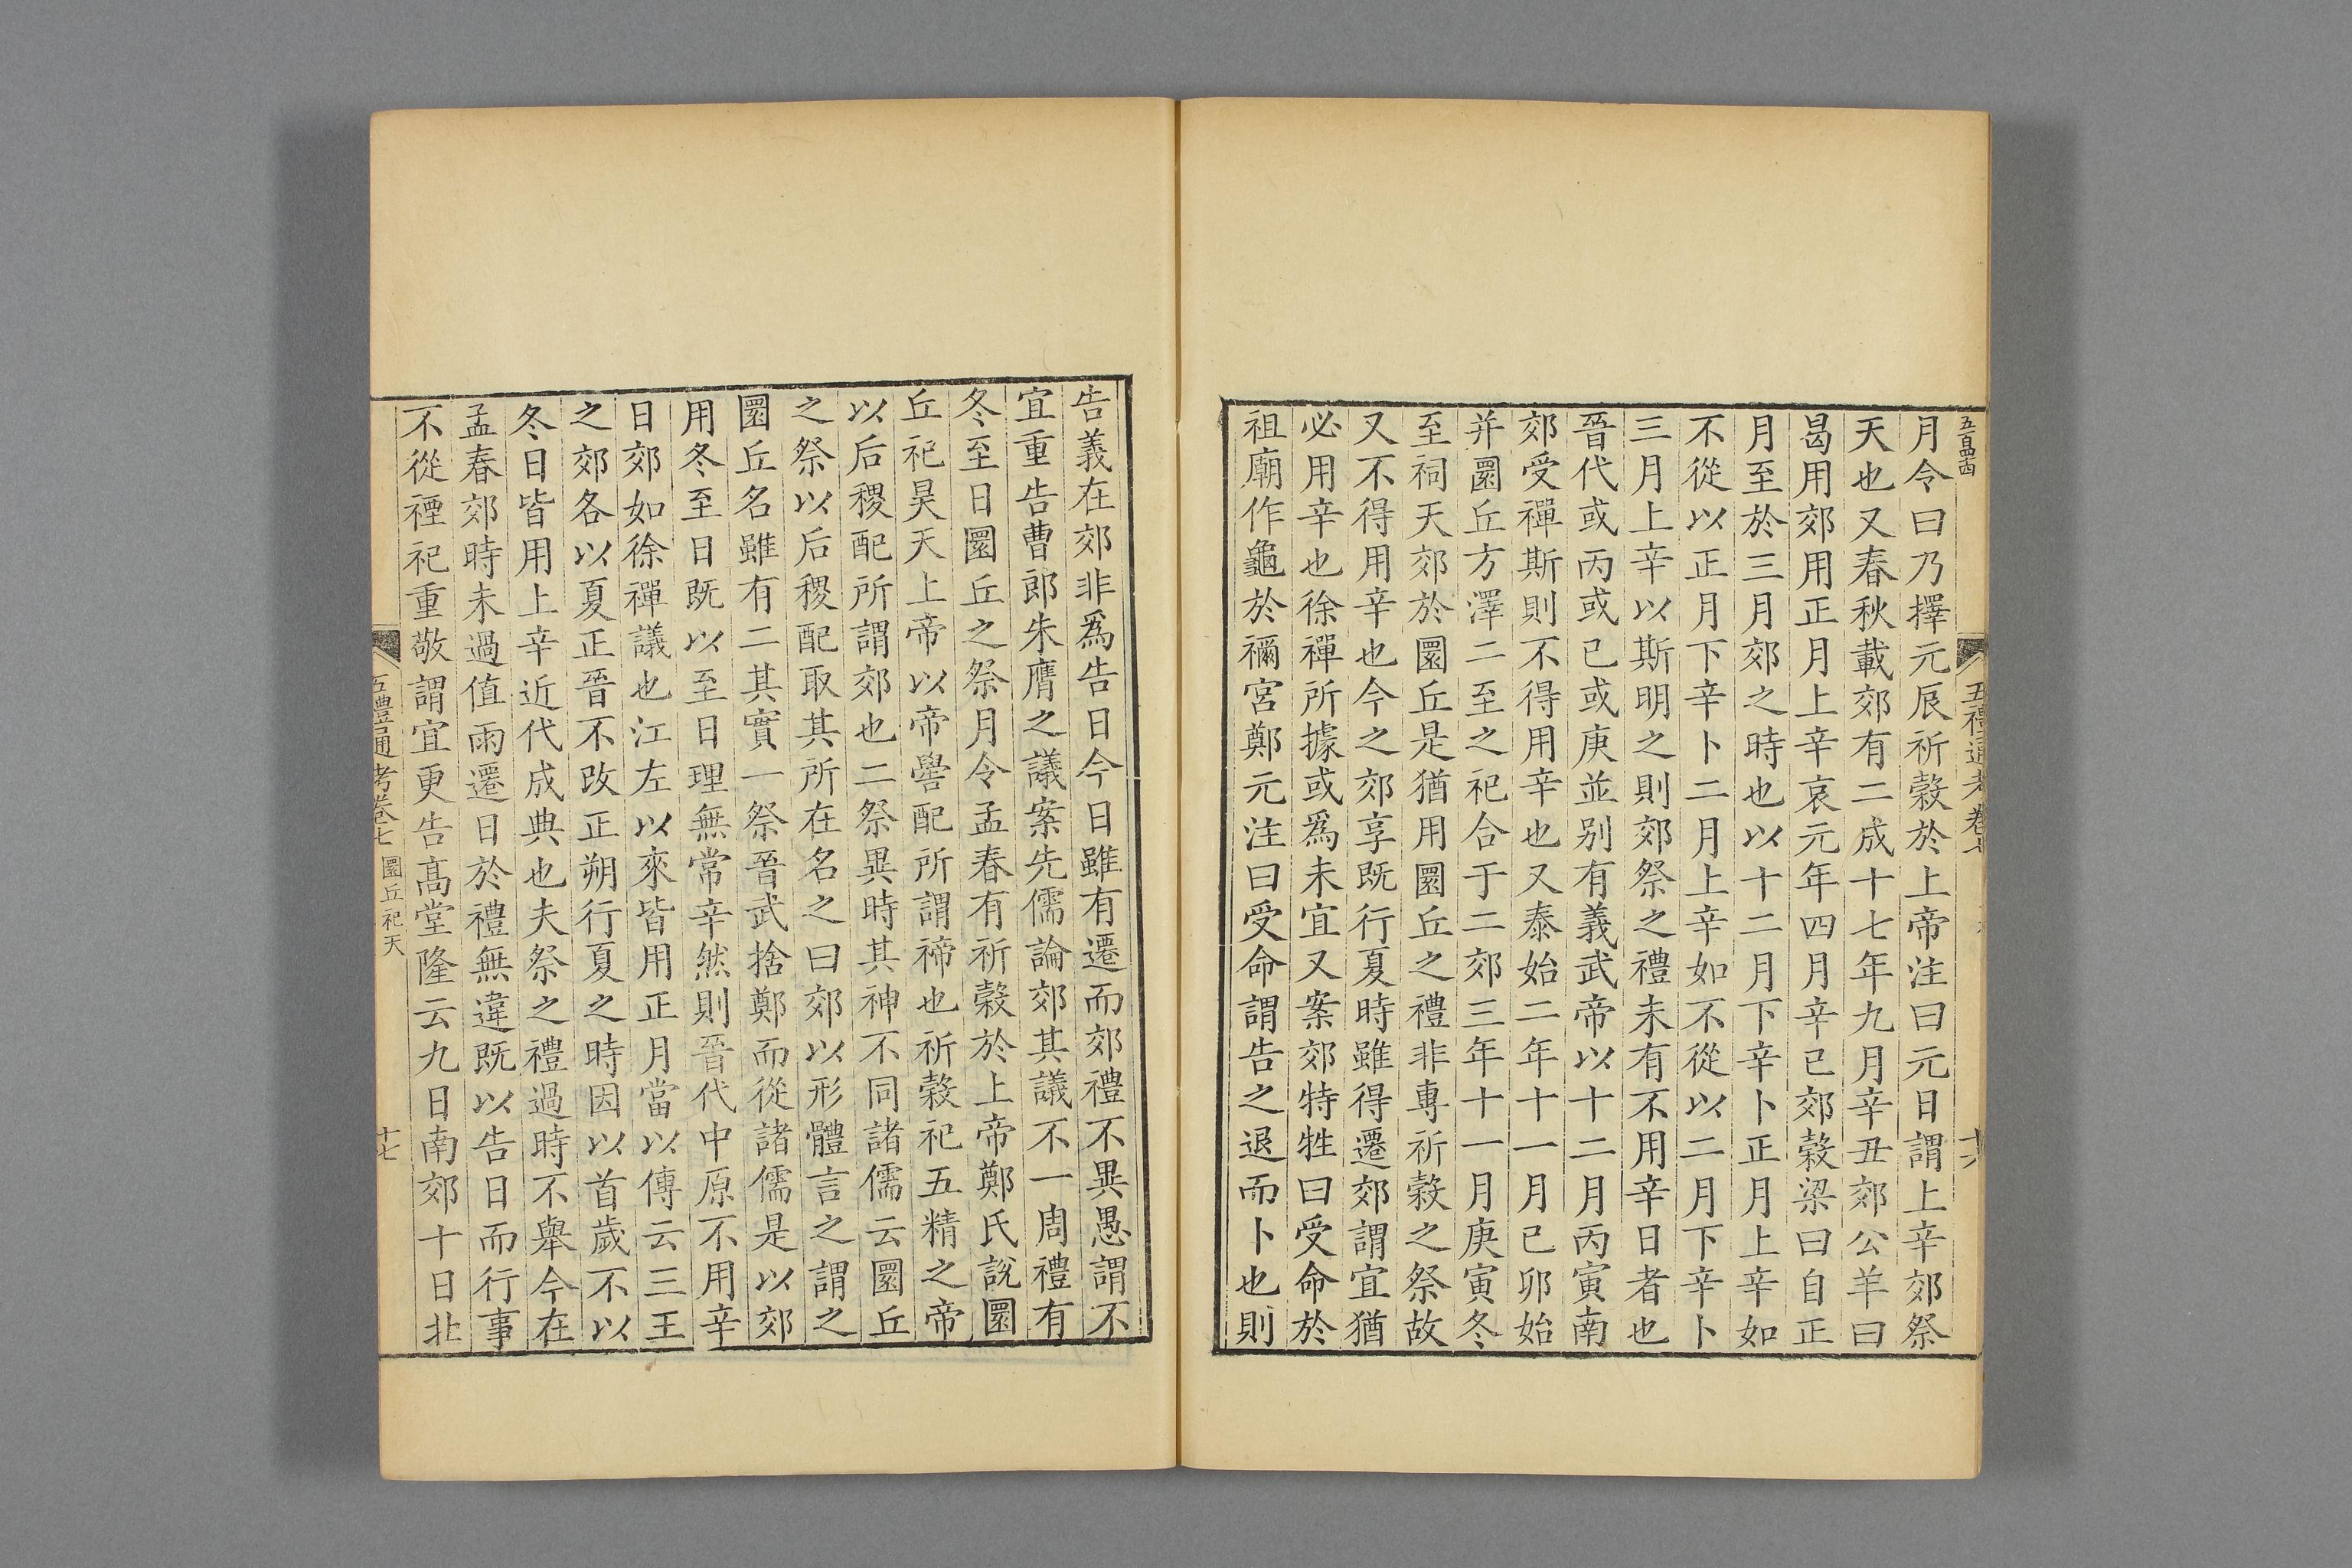 五百四十四
五禮通考卷七
十六
月令曰乃擇元辰祈穀於上帝注曰元日謂上辛郊祭
天也又春秋載郊有二成十七年九月辛丑郊公羊曰
曷用郊用正月上辛哀元年四月辛巳郊穀梁曰自正
月至於三月郊之時也以十二月下辛卜正月上辛如
不從以正月下辛卜二月上辛如不從以二月下辛卜
三月上辛以斯明之則郊祭之禮未有不用辛日者也
晉代或丙或己或庚並別有義武帝以十二月丙寅南
郊受禪斯則不得用辛也又泰始二年十一月己卯始
并圜丘方澤二至之祀合于二郊三年十一月庚寅冬
至祠天郊於圜丘是猶用圜丘之禮非專祈穀之祭故
又不得用辛也今之郊享既行夏時雖得遷郊謂宜猶
必用辛也徐禪所據或爲未宜又案郊特牲曰受命於
祖廟作龜於禰宮鄭元注曰受命謂告之退而卜也則
告義在郊非爲告日今日雖有遷而郊禮不異愚謂不
宜重告曹郎朱膺之議案先儒論郊其議不一周禮有
冬至日圜丘之祭月令孟春有祈穀於上帝鄭氏說圜
丘祀昊天上帝以帝嚳配所謂禘也祈穀祀五精之帝
以后稷配所謂郊也二祭異時其神不同諸儒云圜丘
之祭以后稷配取其所在名之曰郊以形體言之謂之
圜丘名雖有二其實一祭晉武捨鄭而從諸儒是以郊
用冬至日既以至日理無常辛然則晉代中原不用辛
日郊如徐禪議也江左以來皆用正月當以傳云三王
之郊各以夏正晉不改正朔行夏之時因以首歲不以
冬日皆用上辛近代成典也夫祭之禮過時不舉今在
孟春郊時未過值雨遷日於禮無違既以告日而行事
不從禋祀重敬謂宜更告高堂隆云九日南郊十日北
五禮通考卷七 圜丘祀天
十七